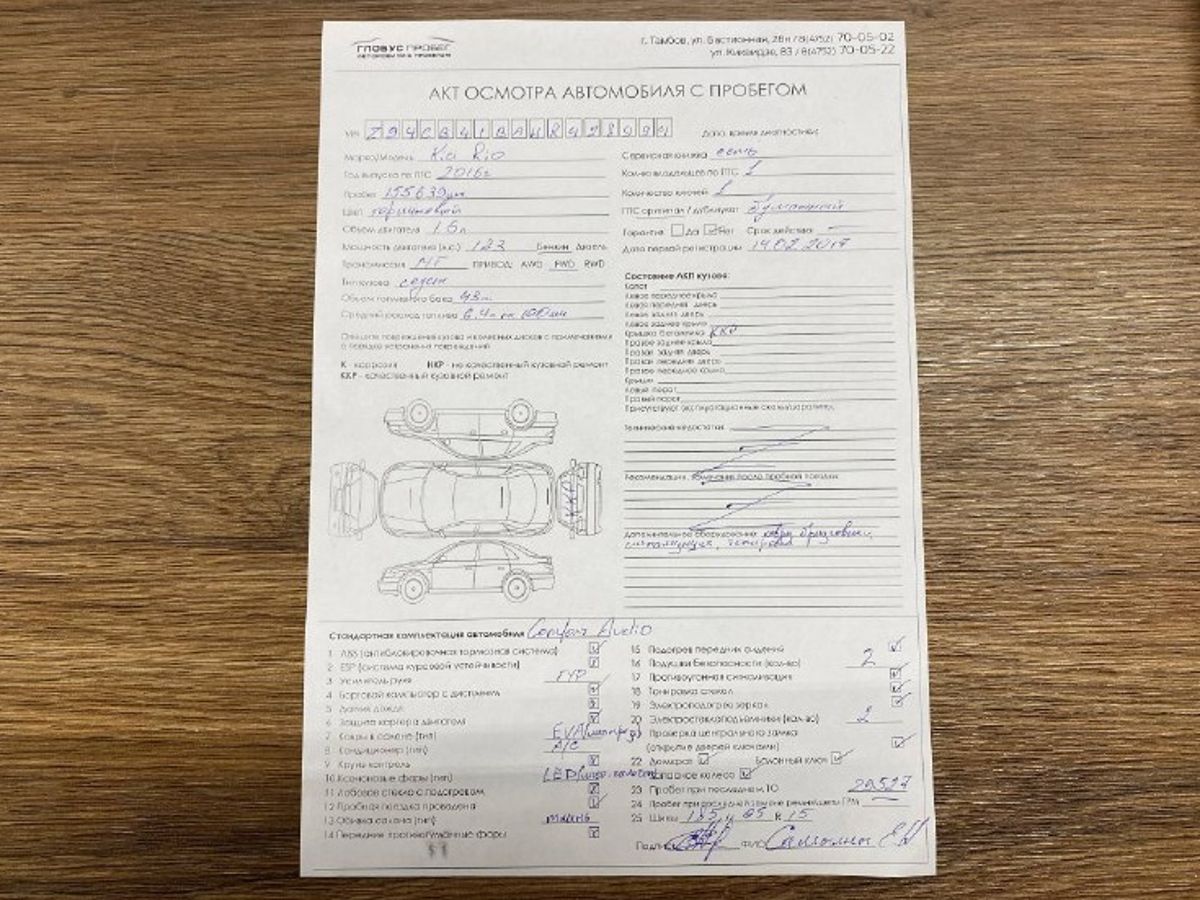 ГЛОБУС ПРОБЕГ
АВТОМОБИЛИ С ПРОБЕГОМ
г. Тамбов, ул. Бастионная, 28н / 8(4752) 70-05-02
ул. Киквидзе, 83 / 8(4752) 70-05-22
АКТ ОСМОТРА АВТОМОБИЛЯ С ПРОБЕГОМ
Дата, время диагностики:
Марка/Модель Kia Rio
Год выпуска по ПТС 2016г
Пробег 155639км
Цвет коричневый
Объем двигателя 1.6л
Мощность двигателя (л.с.) 123 Бензин Дизель
Трансмиссия МТ ПРИВОД: AWD FWD RWD
Тип кузова седан
Объем топливного бака 43л
Средний расход топлива 6.4л на 100км
Опишите повреждения кузова и колесных дисков с примечаниями
о порядке устранения повреждений
К - коррозия НКР - не качественный кузовной ремонт
ККР - качественный кузовной ремонт
Сервисная книжка есть
Кол-во владельцев по ПТС 1
Количество ключей 1
ПТС оригинал / дубликат бумажный
Гарантия Да Нет Срок действия —
Дата первой регистрации 14.02.2017
Состояние ЛКП кузова:
Капот
Левое переднее крыло
Левая передняя дверь
Левая задняя дверь
Левое заднее крыло
Крышка багажника ККР
Правое заднее крыло
Правая задняя дверь
Правая передняя дверь
Правое переднее крыло
Крыша
Левый порог
Правый порог
Присутствуют эксплуатационные сколы/царапины.
Технические недостатки:
Рекомендации, замечания после пробной поездки:
Дополнительное оборудование: ковры, брызговики,
сигнализация, тонировка
Стандартная комплектация автомобиля Comfort Audio
1 АБS (антиблокировочная тормозная система)
2 ESP (система курсовой устойчивости)
3 Усилитель руля ГУР
4 Бортовой компьютер с дисплеем
5 Датчик дождя
6 Защита картера двигателя
7 Ковры в салоне (тип) EVA
8 Кондиционер (тип) A/C
9 Круиз-контроль
10 Ксеноновые фары (тип) LED
11 Лобовое стекло с подогревом
12 Пробная поездка проведена
13 Обивка салона (тип) ткань
14 Передние противотуманные фары
15 Подогрев передних сидений
16 Подушки безопасности (кол-во) 2
17 Противоугонная сигнализация
18 Тонировка стекол
19 Электроподогрев зеркал
20 Электростеклоподъемники (кол-во) 2
Проверка центрального замка
(открытие дверей ключами)
22 Домкрат Балонный ключ
Запасное колесо
23 Пробег при последнем ТО
24 Пробег при последней замене ремня/цепи ГРМ
25 Шины 185 / 65 R 15
Подпись ФИО